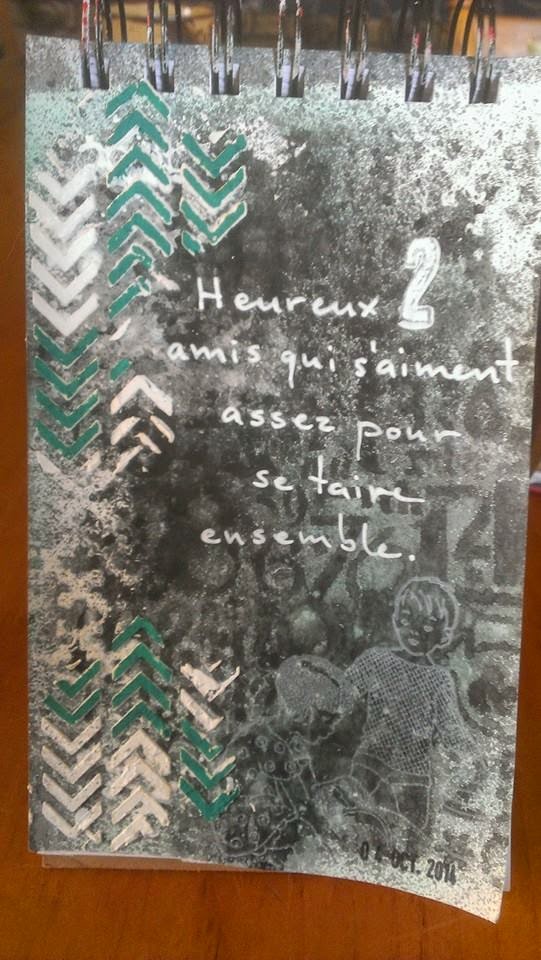 Heureux 2
amis qui s'aiment
assez pour
se taire
ensemble.
OCT. 2014